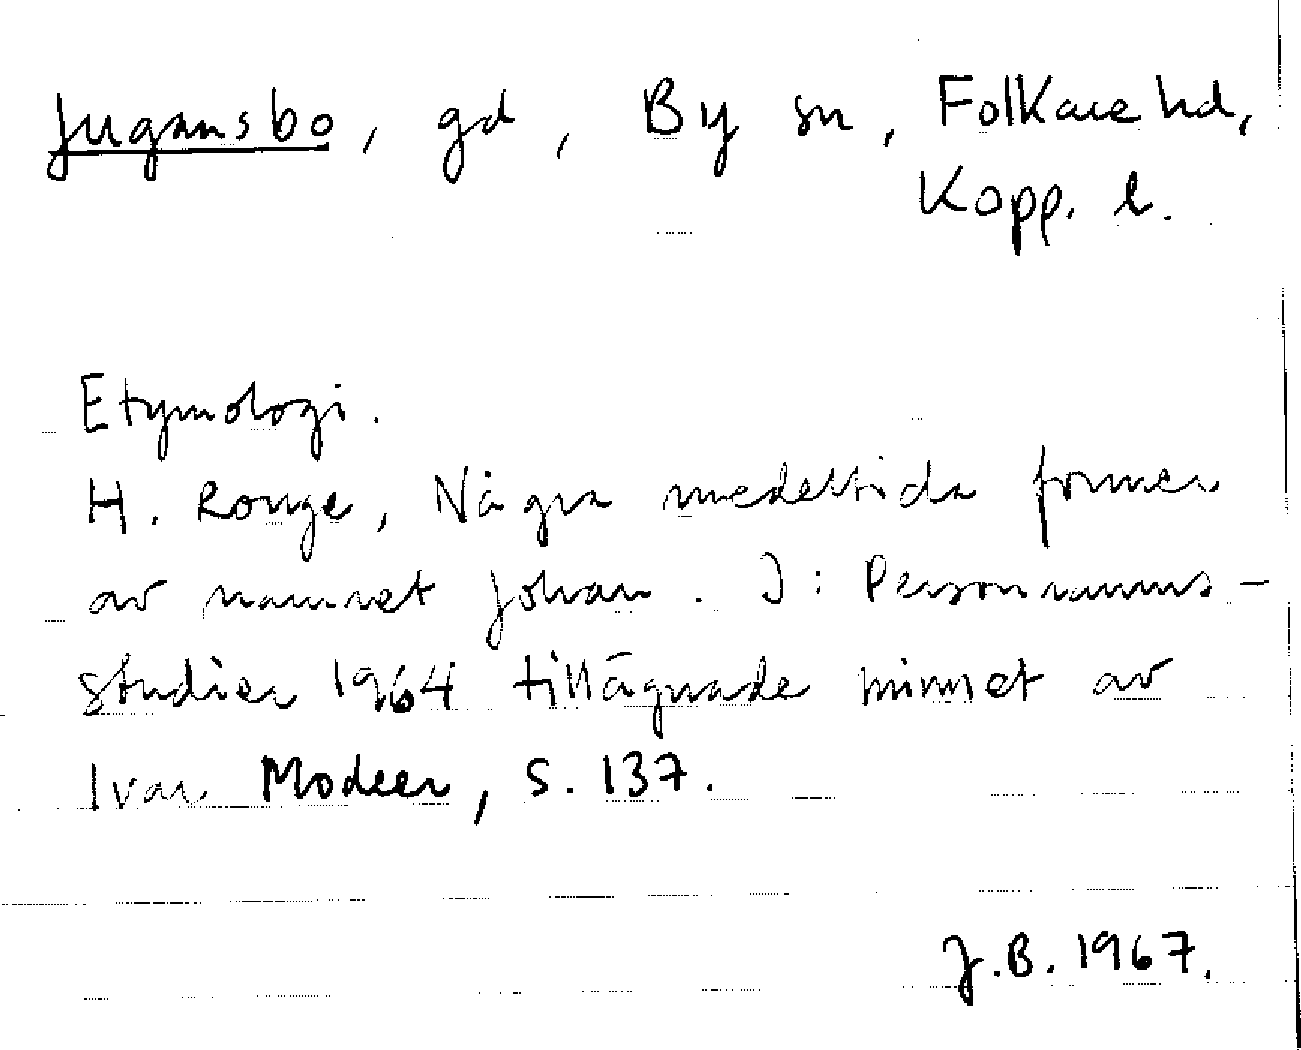 Jugansbo, gd, By sn, Folkare hd,
Kopp. l.
Etymologi.
H. Ronge, Några medeltida former
av namnet Johan. I: Personnamns-
studier 1964 tillägnade minnet av
Ivar Modeer, S. 137.
J.B. 1967.